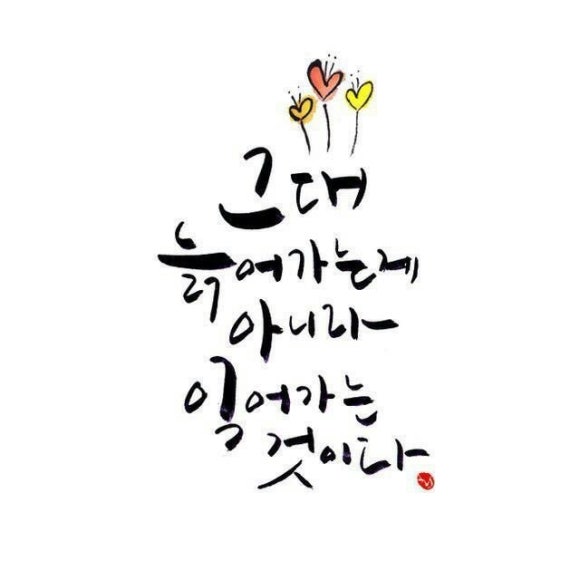 그대
늙어가는게
아니라
익어가는
것이다